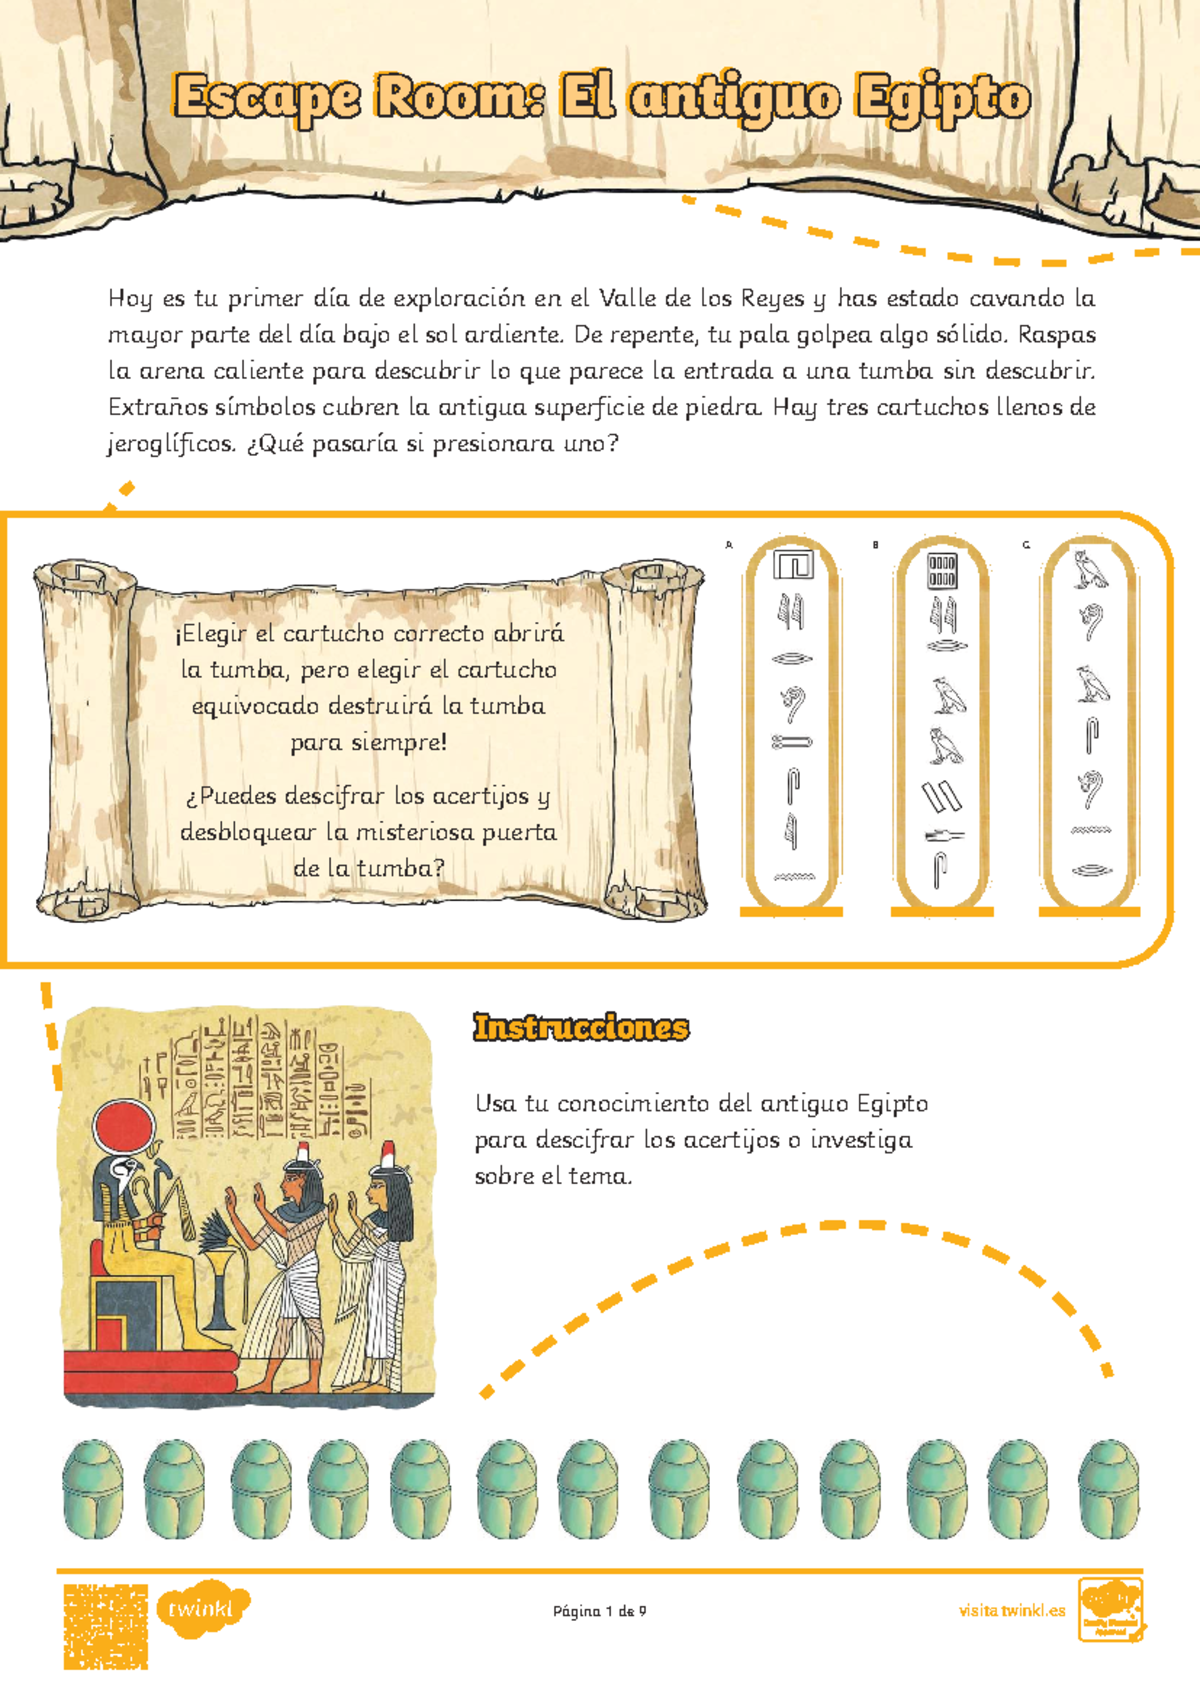 Escape Room: El antiguo Egipto
Hoy es tu primer día de exploración en el Valle de los Reyes y has estado cavando la
mayor parte del día bajo el sol ardiente. De repente, tu pala golpea algo sólido. Raspas
la arena caliente para descubrir lo que parece la entrada a una tumba sin descubrir.
Extraños símbolos cubren la antigua superficie de piedra. Hay tres cartuchos llenos de
jeroglíficos. ¿Qué pasaría si presionara uno?
A B C
¡Elegir el cartucho correcto abrirá
la tumba, pero elegir el cartucho
equivocado destruirá la tumba
para siempre!
¿Puedes descifrar los acertijos y
desbloquear la misteriosa puerta
de la tumba?
Instrucciones
Usa tu conocimiento del antiguo Egipto
para descifrar los acertijos o investiga
sobre el tema.
twinkl
Página 1 de 9
visita twinkl.es